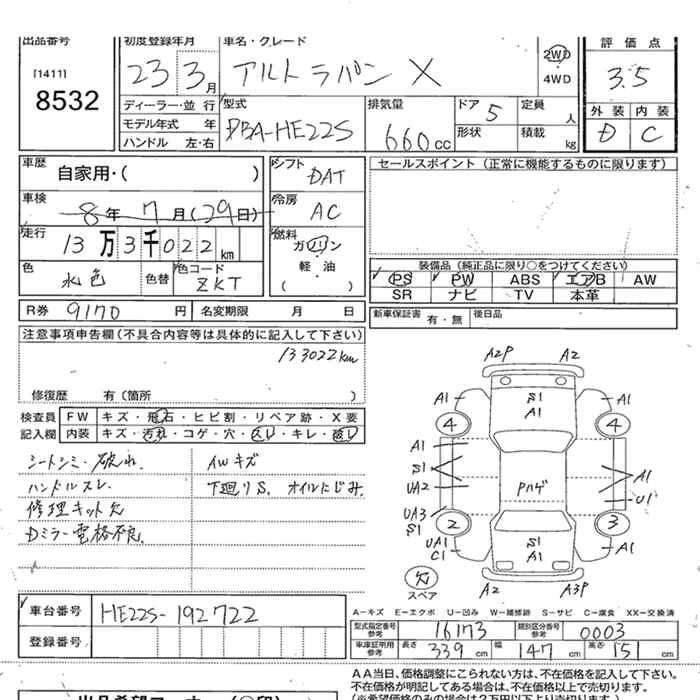 出品番号 初度登録年月 車名・グレード
[1411]
8532
23 3月 アルトラパン X
2WD
4WD
評価点
3.5
外装 内装
D C
ディーラー・並行
モデル年式 年
ハンドル 左・右
型式
DBA-HE22S
排気量
660cc
ドア 5
形状
定員 人
積載 kg
車歴
自家用・( )
シフト
DAT
車検
8年 7月(29日)
冷房
AC
走行
13万3千022km
燃料
ガソリン
軽・油
( )
色
水色
色替
色コード
ZKT
R券 9170 円 名変期限 月 日
セールスポイント (正常に機能するものに限ります)
装備品 (純正品に限り○をつけてください)
PS PW ABS エアB AW
SR ナビ TV 本革
新車保証書 有・無 後日品
注意事項申告欄(不具合内容等は具体的に記入して下さい)
133022km
修復歴 有 (箇所 )
検査員 FW キズ・飛石・ヒビ割・リペア跡・X要
記入欄 内装 キズ・汚れ・コゲ・穴・スレ・キレ・破れ
シートシミ・破れ. AWキズ
ハンドルスレ 下廻りS. オイルにじみ.
修理キット欠
Dミラー電格不良.
A2P A2
A1 S1 A1
A1
4 4
A1
S1
UA2
Pハゲ
A1
U1
UA3
S1
2 3
UA1
C1
S1
A1
A1
欠
スペア
A2 A3P
A−キズ E−エクボ U−凹み W−補修跡 S−サビ C−腐食 XX−交換済
型式指定番号 参考 16173 類別区分番号 参考 0003
車庫証明用 参考 長さ 339 cm 幅 147 cm 高さ 151 cm
車台番号 HE22S-192722
登録番号
AA当日、価格調整にこられない方は、不在価格を記入して下さい。
不在価格が明記してある場合は、不在価格以上で売切ります。